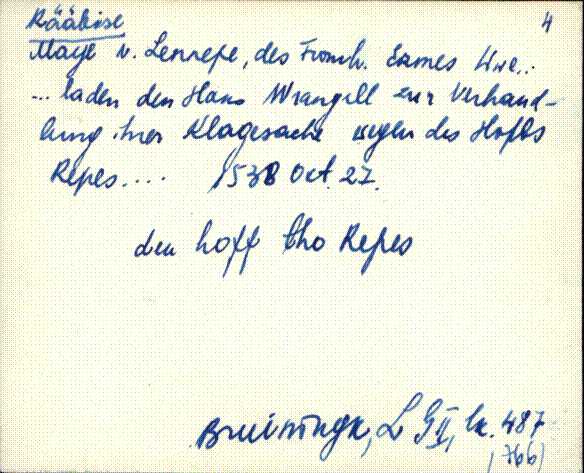 Rääbise 4
Maye v. Lennepe, des Fromh. Ermes Wwe..
... laden den Hans Wrangell zur Verhand-
lung ihrer Klagesache wegen des Hofes
Repes.... 1538 Oct. 27.
den hoff tho Repes
Bruiningk, L G II, lk. 487
(766)